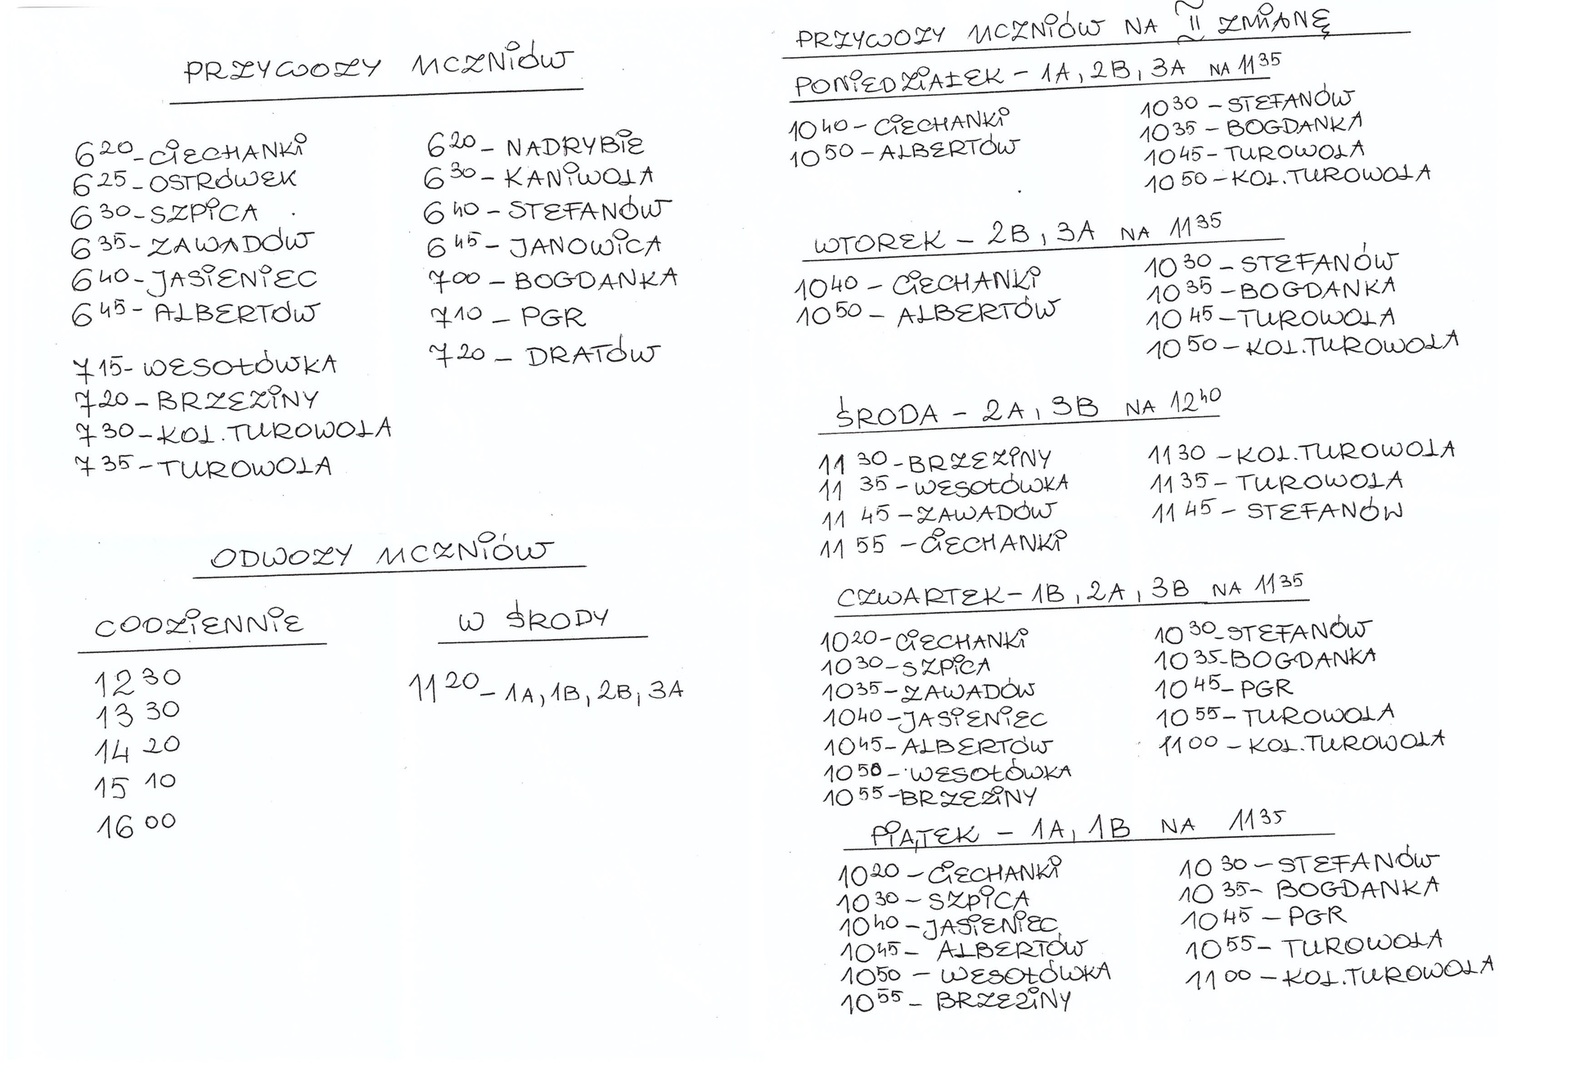 PRZYWOZY UCZNIÓW
620-CIECHANKI
625-OSTRÓWEK
630-SZPICA
635-ZAWADÓW
640-JASIENIEC
645-ALBERTÓW
715-WESOŁÓWKA
720-BRZEZINY
730-KOL.TUROWOLA
735-TUROWOLA
620-NADRYBIE
630-KANIWOLA
640-STEFANÓW
645-JANOWICA
700-BOGDANKA
710-PGR
720-DRATÓW
ODWOZY UCZNIÓW
CODZIENNIE
1230
1330
1420
1510
1600
W ŚRODY
1120-1A,1B,2B,3A
PRZYWOZY UCZNIÓW NA II ZMIANĘ
PONIEDZIAŁEK-1A,2B,3A NA 1135
1040-CIECHANKI
1050-ALBERTÓW
1030-STEFANÓW
1035-BOGDANKA
1045-TUROWOLA
1050-KOL.TUROWOLA
WTOREK-2B,3A NA 1135
1040-CIECHANKI
1050-ALBERTÓW
1030-STEFANÓW
1035-BOGDANKA
1045-TUROWOLA
1050-KOL.TUROWOLA
ŚRODA-2A,3B NA 1240
1130-BRZEZINY
1135-WESOŁÓWKA
1145-ZAWADÓW
1155-CIECHANKI
1130-KOL.TUROWOLA
1135-TUROWOLA
1145-STEFANÓW
CZWARTEK-1B,2A,3B NA 1135
1020-CIECHANKI
1030-SZPICA
1035-ZAWADÓW
1040-JASIENIEC
1045-ALBERTÓW
1050-WESOŁÓWKA
1055-BRZEZINY
1030-STEFANÓW
1035-BOGDANKA
1045-PGR
1055-TUROWOLA
1100-KOL.TUROWOLA
PIĄTEK-1A,1B NA 1135
1020-CIECHANKI
1030-SZPICA
1040-JASIENIEC
1045-ALBERTÓW
1050-WESOŁÓWKA
1055-BRZEZINY
1030-STEFANÓW
1035-BOGDANKA
1045-PGR
1055-TUROWOLA
1100-KOL.TUROWOLA